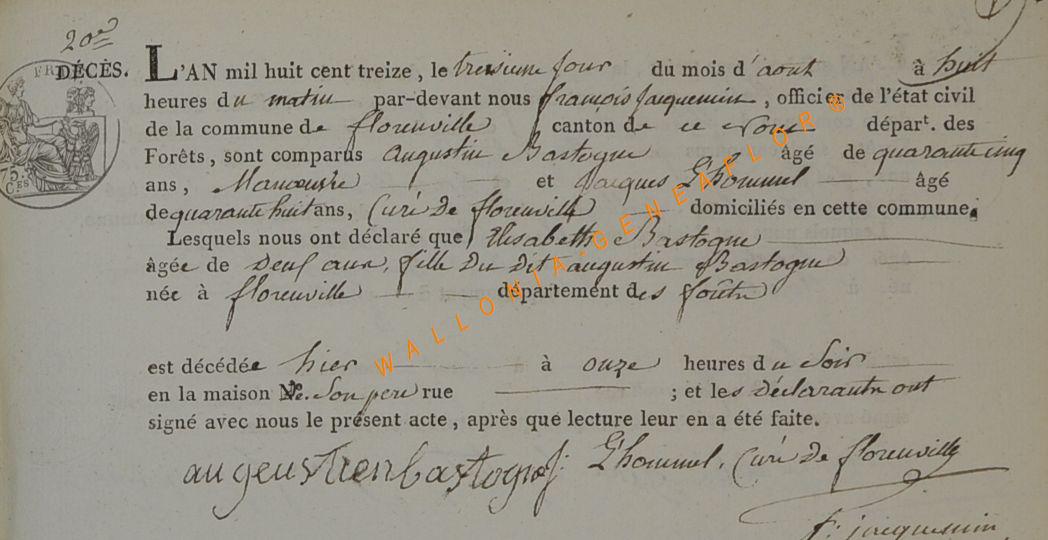 20e
DÉCÈS. L'AN mil huit cent treize, le treisieme jour du mois d'aout à huit
heures du matin par-devant nous françois Jacquemin, officier de l'état civil
de la commune de florenville canton de ce nom départ. des
Forêts, sont comparus augustin Bastogne âgé de quarante cinq
ans, Manoeuvre et Jacques L'hommel âgé
de quarante huit ans, Curé de florenville domiciliés en cette commune,
Lesquels nous ont déclaré que Elisabeth Bastogne
âgée de Deux ans, fille Du Dit augustin Bastogne
née à florenville département des forêts
est décédée hier à onze heures du Soir
en la maison de Son pere rue ; et les déclarants ont
signé avec nous le présent acte, après que lecture leur en a été faite.
augeustien bastogne L'hommel, Curé De florenville
f: jacquemin
FR
75.
C.ES
WALLONIA-GENEAFLOR ®